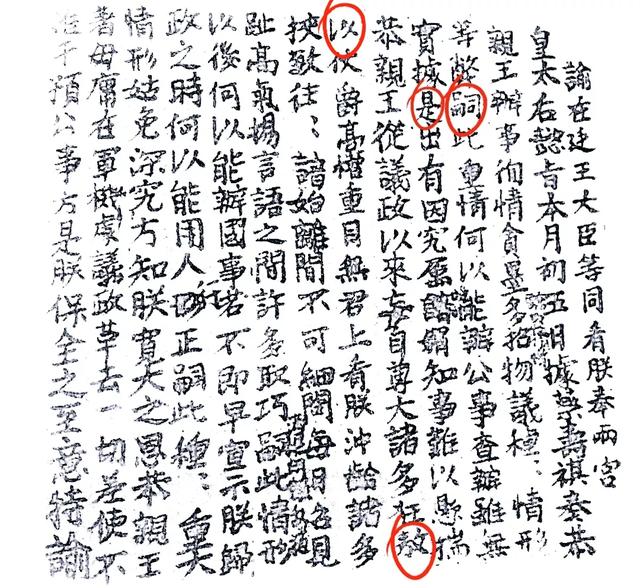 諭在廷王大臣等同看朕奉兩宮
皇太后懿旨本月初五日據蔡壽祺奏恭
親王辦事徇情貪墨多招物議種〻情形
等獘嗣此重情何以能辦公事查辦雖無
實據是出有因究屬知事難以懸揣
恭親王從議政以來妄自尊大諸多狂敖
以使爵高權重目無君上看朕沖齡諸多
挾致往〻諳始離間不可細問每日召見
趾高氣揚言語之間許多取巧嗣此情形
以後何以能辦國事若不即早宣示朕歸
政之時何以能用人行正嗣此種〻重大
情形姑免深究方知朕寬大之恩恭親王
著毋庸在軍機處議政革去一切差使不
准干預公事方是朕保全之至意特諭